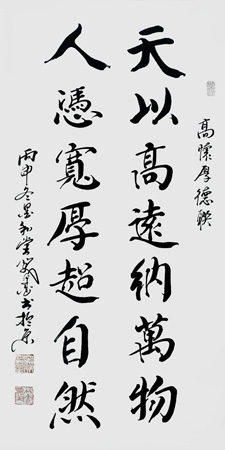 高懷厚德聯
天以高遠納萬物
人憑寬厚超自然
丙申冬墨和堂
書於京